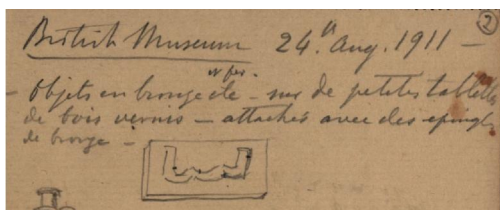 2
British Museum 24th Aug. 1911 —
et fer.
— Objets en bronze etc — sur de petites tablettes
de bois vernis — attachés avec des epingles
de bronze —